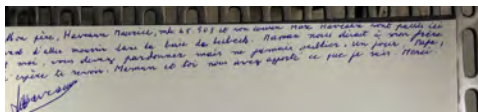 Mon père, Hermann Maurice, mle 45.503 et son cousin Marc Hermann sont passés ici
avant d'aller mourir dans la baie de Lubeck. Maman nous disait à mon frère
et moi, vous devez pardonner mais ne jamais oublier, un jour, Papa,
j'espère te revoir. Maman et toi nous avez apporté ce que je suis. Merci.